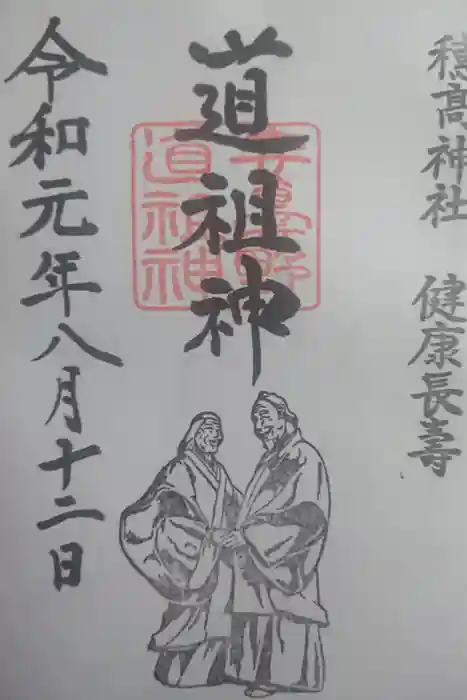 穂高神社 健康長壽
道祖神
安曇野
道祖神
令和元年八月十二日